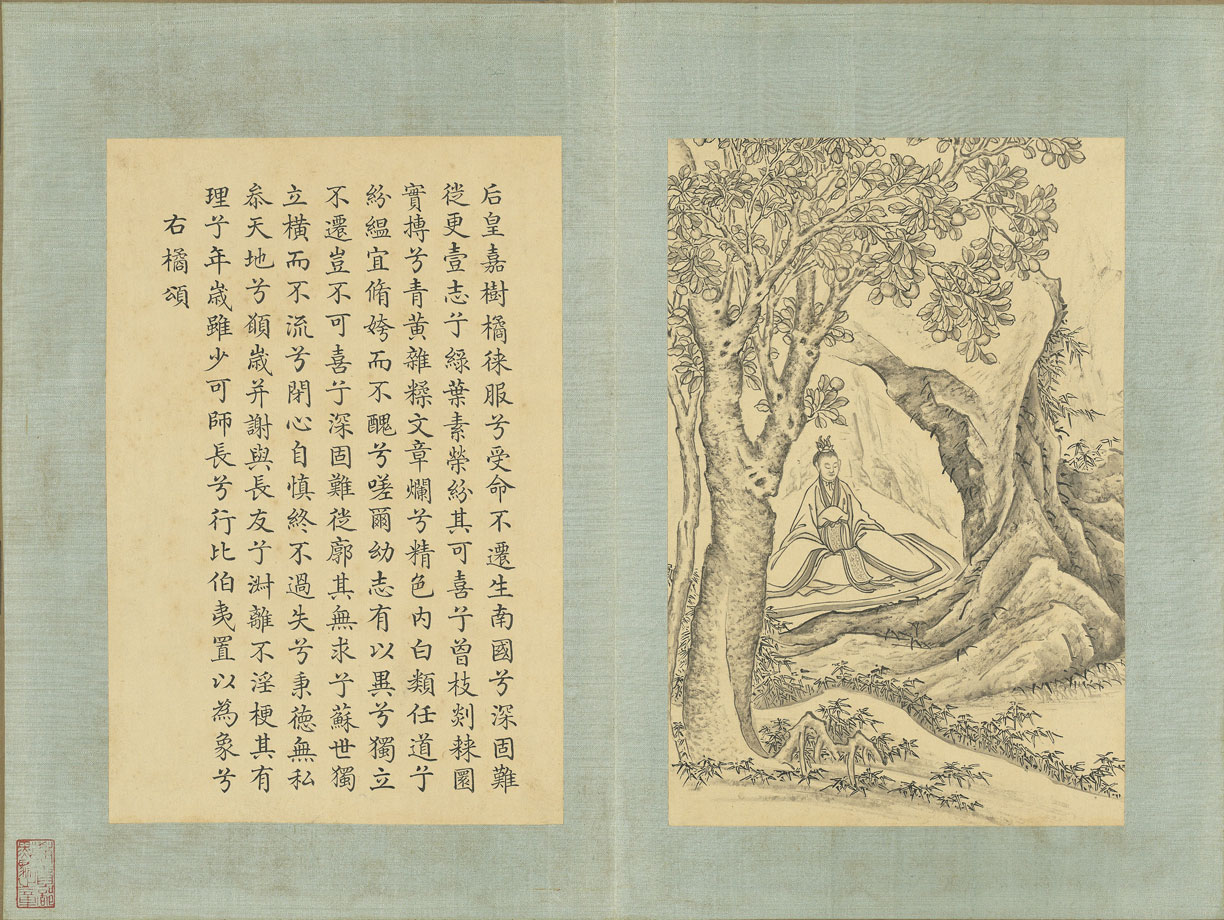 后皇嘉樹橘徠服兮受命不遷生南國兮深固難
徙更壹志兮綠葉素榮紛其可喜兮曾枝剡棘圜
實摶兮青黃雜糅文章爛兮精色內白類任道兮
紛緼宜脩姱而不醜兮嗟爾幼志有以異兮獨立
不遷豈不可喜兮深固難徙廓其無求兮蘇世獨
立橫而不流兮閉心自慎終不過失兮秉德無私
叅天地兮願歲并謝與長友兮淑離不淫梗其有
理兮年歲雖少可師長兮行比伯夷置以為象兮
右橘頌